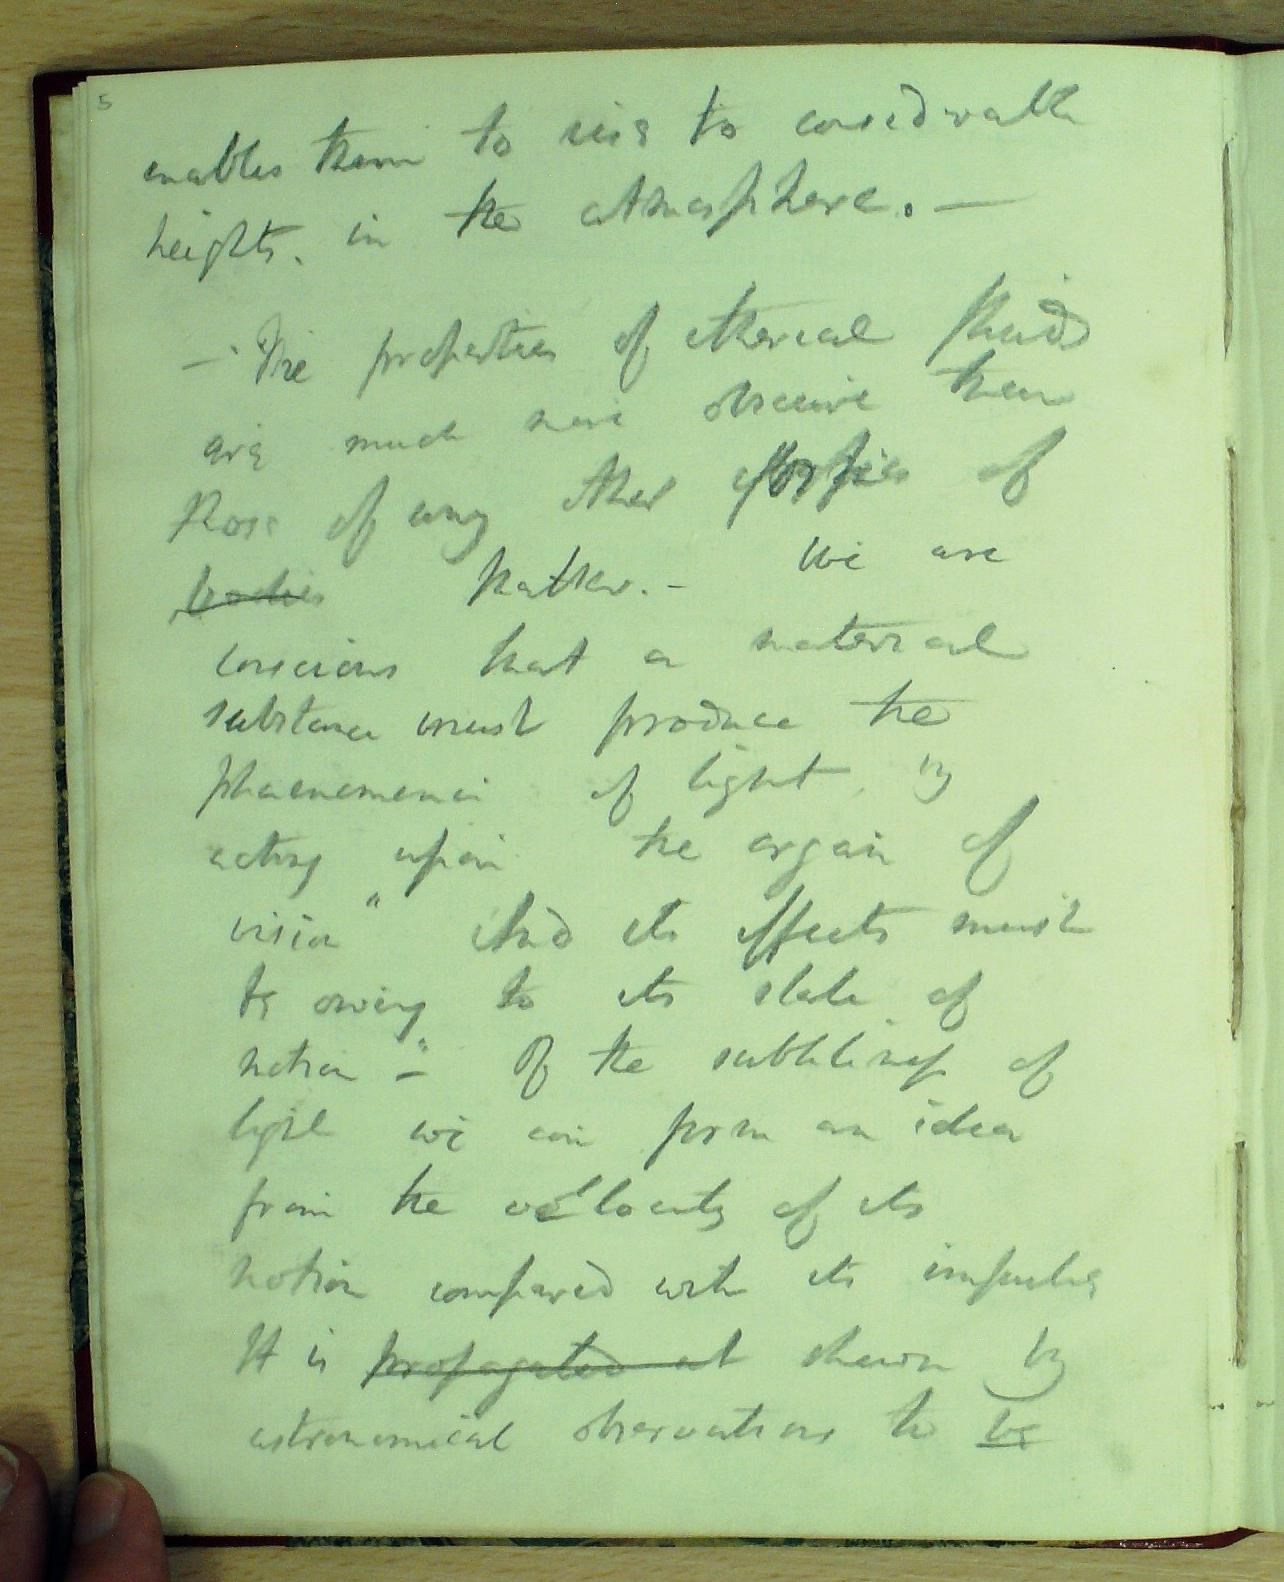 5
enables them to rise to considerable
heights. in the atmosphere. —
— The properties of ethereal fluids
are much more obscure than
those of any other species of
bodies matter. – We are
conscious that a material
substance must produce the
phaenomena of light, by
acting upon the organ of
vision" And its effects must
be owing to its state of
motion –" Of the subtileness of
light we can form an idea
from the velocity of its
motion compared with its impulse
It is propagated at shewn by
astronomical observations to be